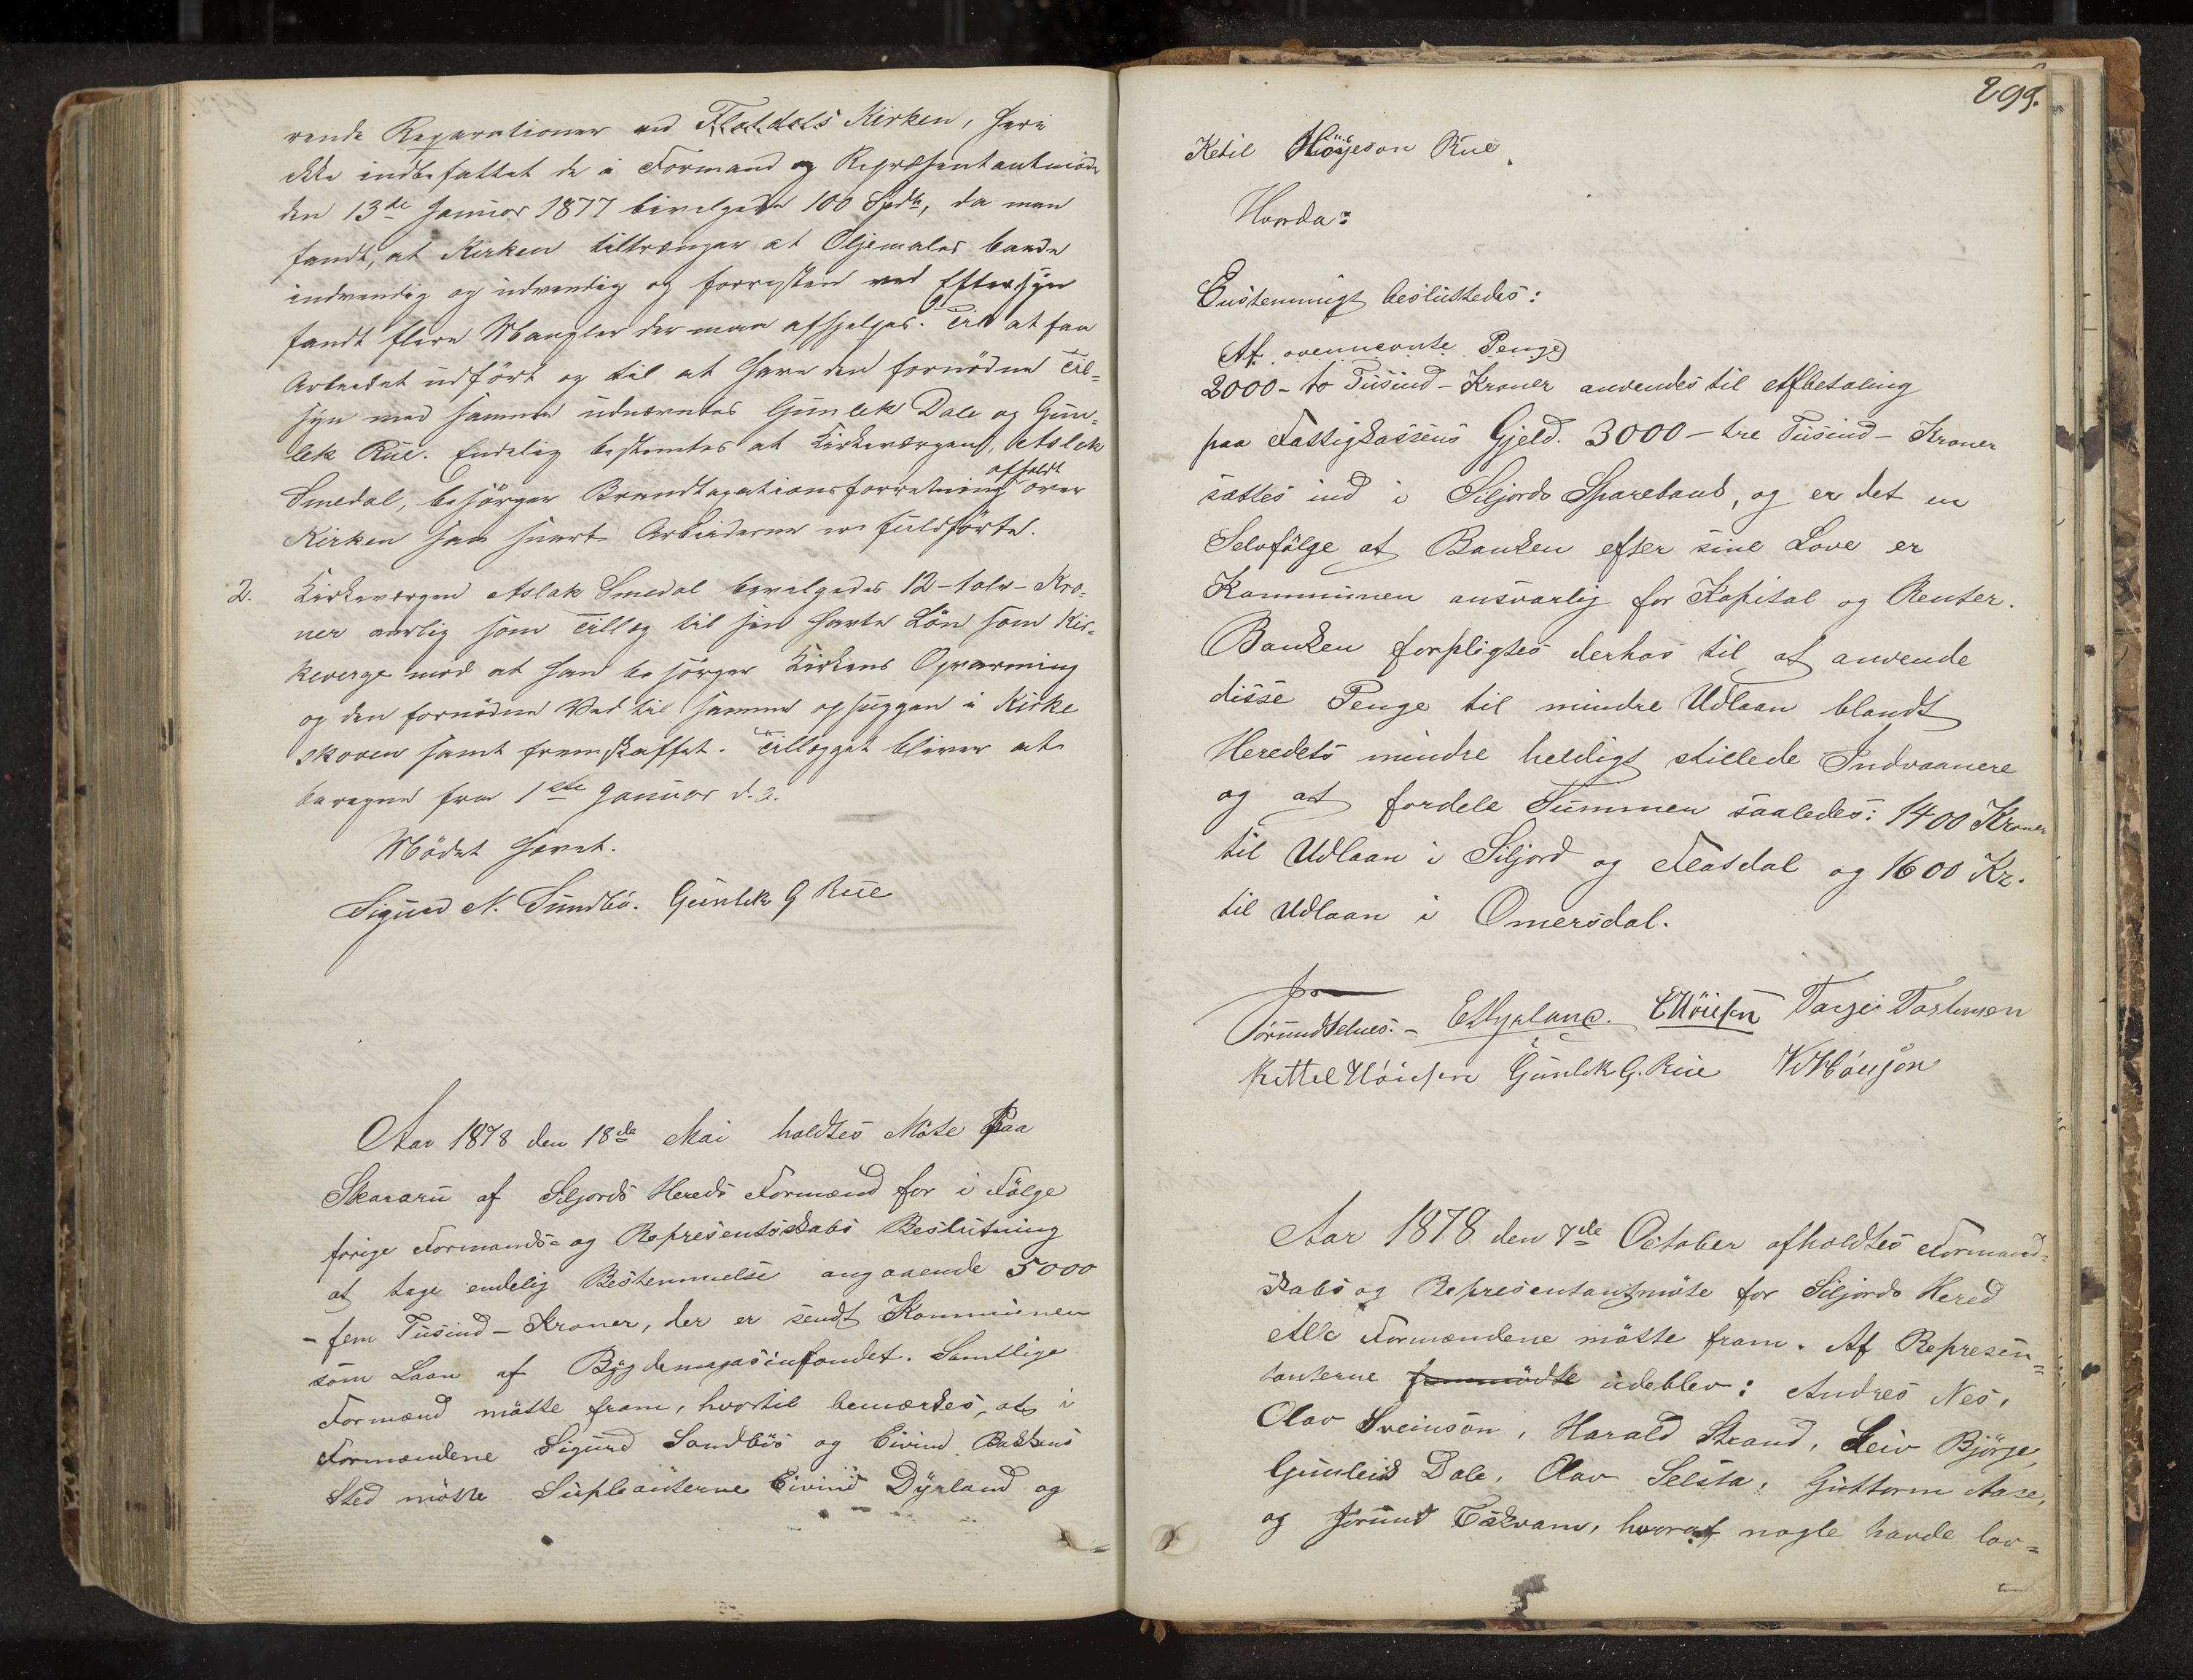 rende Reparationer ved Flatdals Kirken, heri
ikke indbefattet de i Formand og Repræsentantmöde
den 13de Januar 1877 bevilgede 100 Spdlr, da man
fandt, at Kirken tiltrænger at Oljemales baade
indvendig og udvendig og forresten ved Eftersyn
fandt flere Mangler der maa afhjelpes. Til at faa
Arbeidet udfört og til at have den fornödne Til=
syn med samme udnævntes Gunlek Dale og Gun=
lek Rue. Endelig bestemtes at Kirkeværgen, Aslak
afholdt
Smedal, besörger Brandtaxationsforretning over
Kirken saa snart Arbeiderne er fuldförte.
2. Kirkeværgen Aslak Smedal bevilgedes 12-tolv-Kro=
ner aarlig som Tillæg til sin havte Lön som Kir=
keverge mod at han besörger Kirkens Opvarming
og den fornödne Ved til samme ophuggen i Kirke
skoven samt fremskaffet. Tillægget bliver at
beregne fra 1ste Januar d. A.
Mödet hævet.
Sigurd N. Sundbö. Gunlek G Rue
Aar 1878 den 18de Mai holdtes Möte Paa
Skararu af Siljords Hereds Formænd for i Fölge
forige Formands- og Represenstskabs Beslutning
at tage endelig Bestemmelse angaaende 5000
- fem Tusind - Kroner, der er sendt Kommunen
som Laan af Bygdemagasinfondet. Samtlige
Formænd mötte fram, hvortil bemærkes, at i
Formændene Sigurd Sandbös og Eivind Bakkens
Sted mötte Supleanterne Eivind Dyrland og
299.
Ketil Höyeson Rue.
Hvorda:
Enstemmigt besluttedes:
(Af ovennevnte Penge)
2000 - to Tusind - Kroner anvendes til Afbetaling
paa Fattigkassens Gjeld. 3000 - tre Tusind - Kroner
sættes ind i Siljords Sparebank, og er det en
Selvfölge at Banken efter sine Love er
Kommunen ansvarlig for Kapital og Renter.
Banken forpligtes derhos til at anvende
disse Penge til mindre Udlaan blandt
Heredets mindre heldigt stillede Indvaanere
og at fordele Summen saaledes: 1400 Kroner
til Udlaan i Siljord og Flatdal og 1600 Kr.
til Udlaan i Omersdal.
Jörund Telnes. - E Dyrland. Targei Tarkenson
Kittel Höiesen Gunlek G. Rue
Aar 1878 den 7de October afholdtes Formand=
skabs og Representantmöte for Siljords Hered
Alle Formændene mötte fram. Af Represen=
tanterne frammödte udeblev: Andres Nes,
Olav Sveinson, Harald Strand, Leiv Björge,
Gunleik Dale, Olav Selsta, Guttorm Aase,
og Jörund Tskvam, hvoraf nogle havde lov=